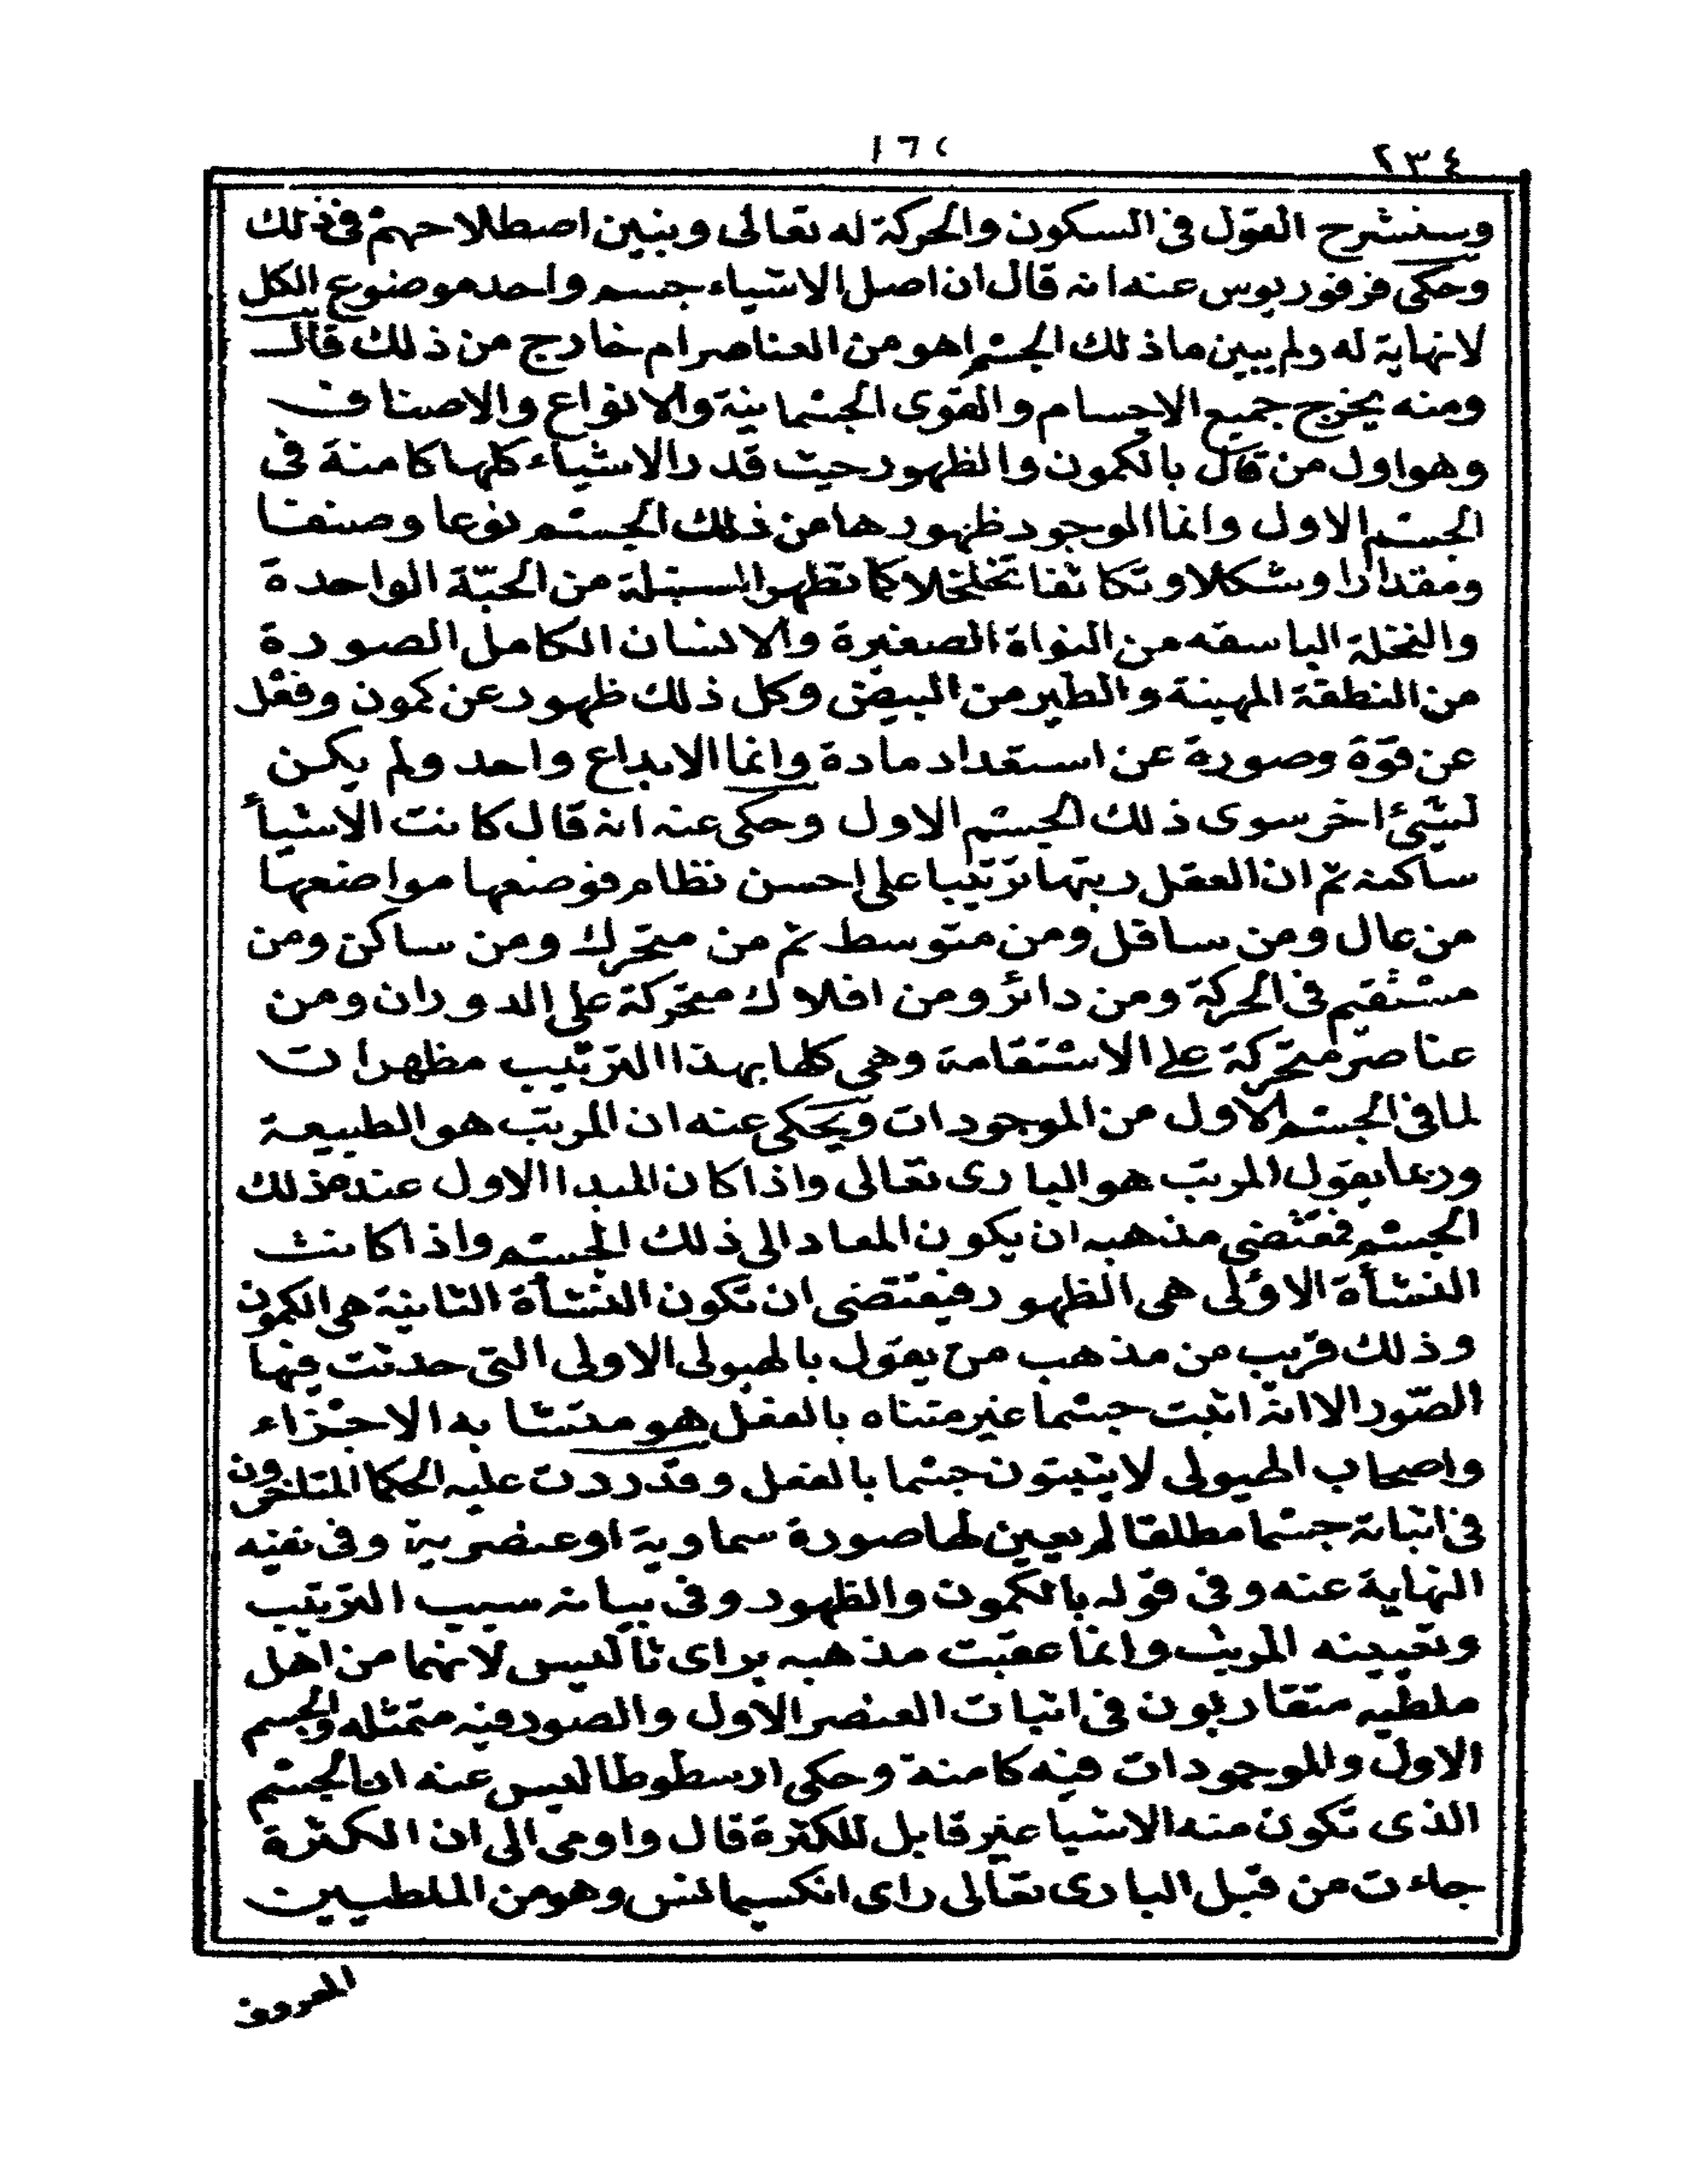 ١٦٢
٢٣٤
وسنشرح القول فى السكون والحركة له تعالى ونبين اصطلاحهم فى ذلك
وحكى فرفوريوس عنه انه قال ان اصل الاشياء جسم واحد موضوع الكل
لانهاية له ولم يبين ماذلك الجسم اهو من العناصر ام خارج من ذلك قال
ومنه يخرج جميع الاجسام والقوى الجسمانية والانواع والاصناف
وهو اول من قال بالكمون والظهور حيث قدر الاشياء كلها كامنة فى
الجسم الاول وانما الموجود ظهورها من ذلك الجسم نوعا وصنفا
ومقدارا وشكلا وتكاثفا تخلخلا كما تظهر السنبلة من الحبّة الواحدة
والنخلة الباسقه من النواة الصغيرة والانسان الكامل الصورة
من النطفة المهينة والطير من البيض وكل ذلك ظهور عن كمون وفعل
عن قوّة وصورة عن استعداد مادة وانما الابداع واحد ولم يكن
لشيئ اخر سوى ذلك الجسم الاول وحكى عنه انه قال كانت الاشيأ
ساكنه ثم ان العقل ربتها ترتيبا على احسن نظام فوضعها مواضعها
من عال ومن سافل ومن متوسط ثم من متحرك ومن ساكن ومن
مستقيم فى الحركة ومن دائر ومن افلاك متحركة على الدوران ومن
عناصر متحركة على الاستقامة وهى كلها بهذا الترتيب مظهرات
لما فى الجسم الاول من الموجودات ويحكى عنه ان المرتب هو الطبيعة
وربما يقول المرتب هو البارى تعالى واذا كان المبدا الاول عنده ذلك
الجسم فمقتضى مذهبه ان يكون المعاد الى ذلك الجسم واذا كانت
النشأة الاؤلى هى الظهور فيقتضى ان تكون النشأة الثانية هى الكمون
وذلك قريب من مذهب من يقول بالهيولى الاولى التى حدثت فيها
الصّور الا انه اثبت جسما غير متناه بالفعل هو متشابه الاجزاء
واصحاب الهيولى لا يثبتون جسما بالفعل وقد ردت عليه الحكما المتاخرون
فى اثباته جسما مطلقا لم يعين لها صورة سماوية او عنصرية وفى نفيه
النهاية عنه وفى قوله بالكمون والظهور وفى بيانه سبب الترتيب
وتعيينه المرتب وانما عقبت مذهبه براى ثاليس لانهما من اهل
ملطيه متقاربون فى اثبات العنصر الاول والصور فيه متمثله والجسم
الاول والموجودات فيه كامنة وحكى ارسطوطاليس عنه ان الجسم
الذى تكون منه الاشيا غير قابل للكثرة قال واومى الى ان الكثرة
جاءت من قبل البارى تعالى راى انكسيمانس وهو من الملطيين
المعروف